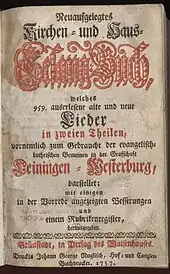 Neuaufgelegtes
Kirchen- und Haus-
Gesang-Buch,
welches
959. auserlesene alte und neue
Lieder
in zweien Theilen,
vornemlich zum Gebrauche der evangelisch-
lutherischen Gemeinen in der Grafschaft
Leiningen-Westerburg,
darstellet;
mit einigen
in der Vorrede angezeigten Besserungen
und
einem Rubrikenregister,
herausgegeben.
Grünstadt, in Verlag des Waisenhauses.
Druckts Johann George Hof- und Canzley-
Buchdrucker. 1753.